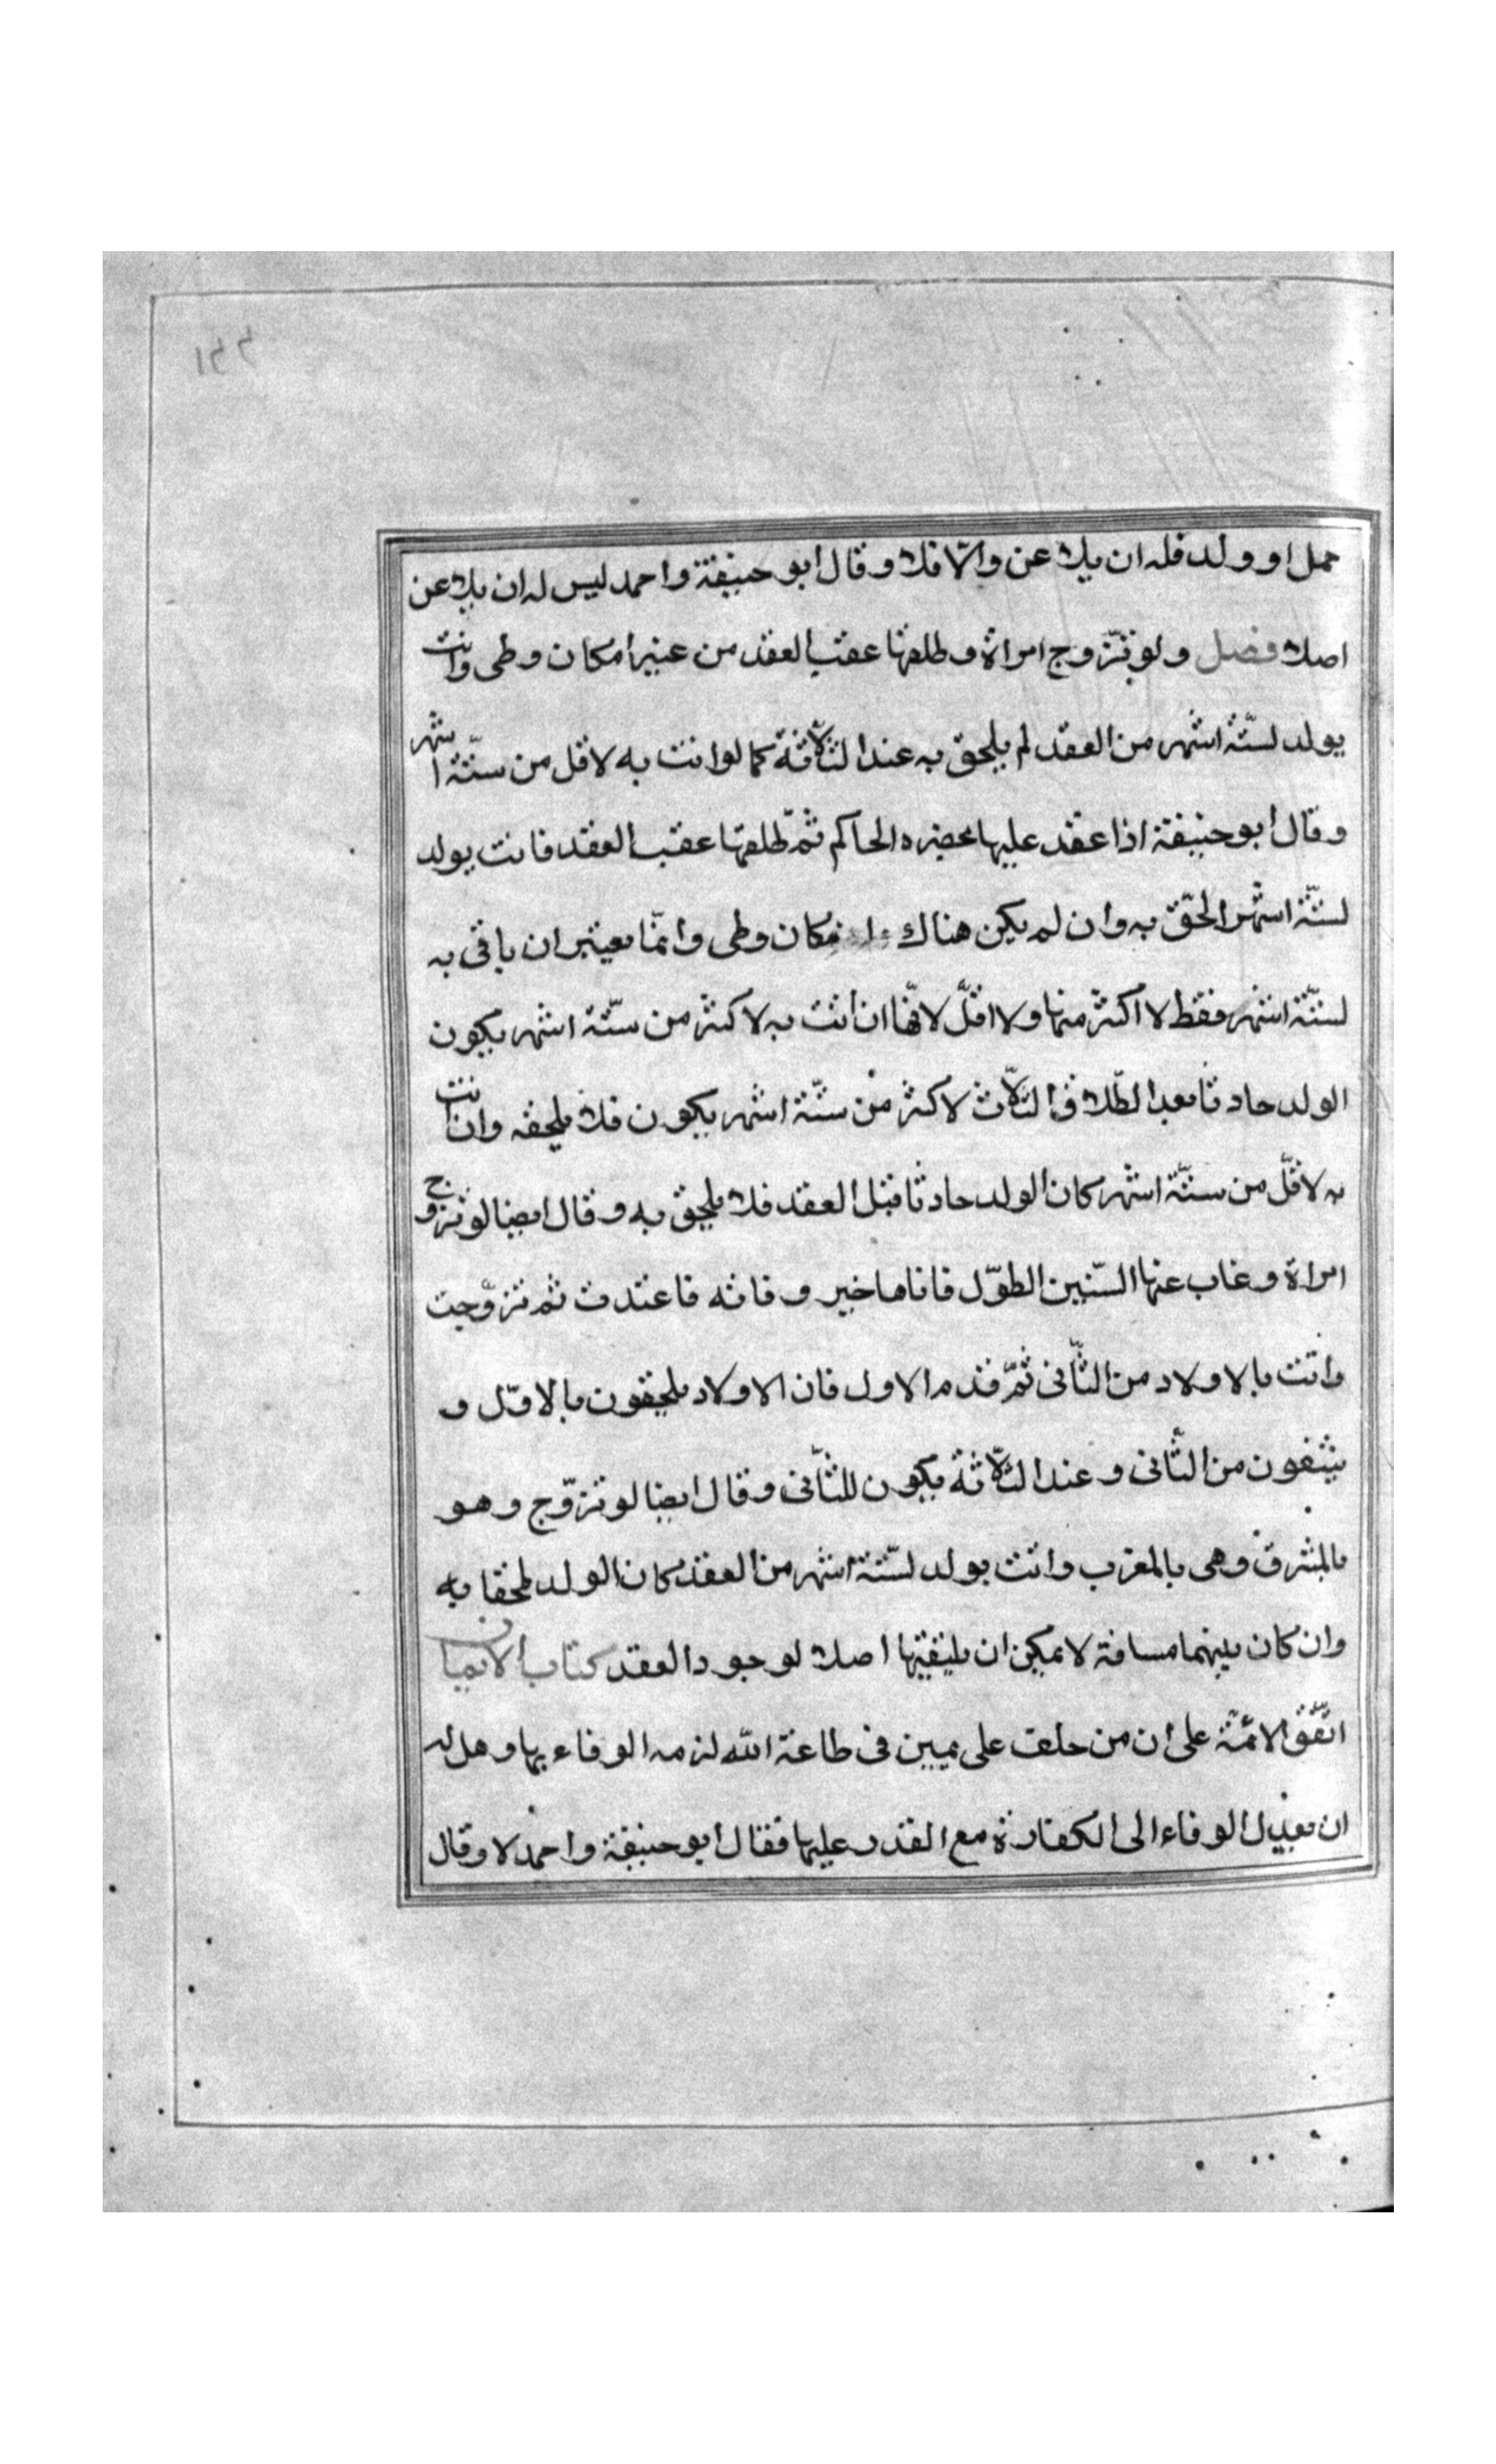 حمل او ولد فله ان يلاعن والّا فلا وقال ابو حنيفة واحمد ليس له ان يلاعن
اصلا فصل ولو تزّوج امراة وطلقها عقيب العقد من غير امكان وطى واتت
بولد لستّة اشهر من العقد لم يلحق به عند الثلّاثة كما لو اتت به لاقل من ستّة اشهر
وقال ابو حنيفة اذا عقد عليها بحضره الحاكم ثمّ طلقها عقيب العقد فاتت بولد
لستّة اشهر الحقّ به وان لم يكن هناك امكان وطى وانمّا يعتبر ان ياتى به
لستّة اشهر فقط لا اكثر منها ولا اقلّ لانّها ان اتت به لاكثر من ستّة اشهر يكون
الولد حادثا بعد الطّلاق الثلّاث لاكثر من ستّة اشهر يكون فلا يلحقه وان اتت
به لاقلّ من ستّة اشهر كان الولد حادثا قبل العقد فلا يلحق به وقال ايضا لو تزوج
امراة وغاب عنها السّنين الطوّل فاتاها خبر وفاته فاعتدت ثم تزوّجت
واتت بالاولاد من الثّانى ثمّ قدم الاول فان الاولاد يلحقون بالاوّل و
ينتفون من الثّانى وعند الثلّاثة يكون للثّانى وقال ايضا لو تزوّج وهو
بالمشرق وهى بالمغرب واتت بولد لستّة اشهر من العقد كان الولد ملحقا به
وان كان بينهما مسافة لا يمكن ان يلتقيها اصلا لوجود العقد كتاب الايمان
اتفّق الائمّة على ان من حلف على يمين فى طاعة الله لزمه الوفاء بها وهل له
ان يعدل الوفاء الى الكفارة مع القدر عليها فقال ابو حنيفة واحمد لا وقال